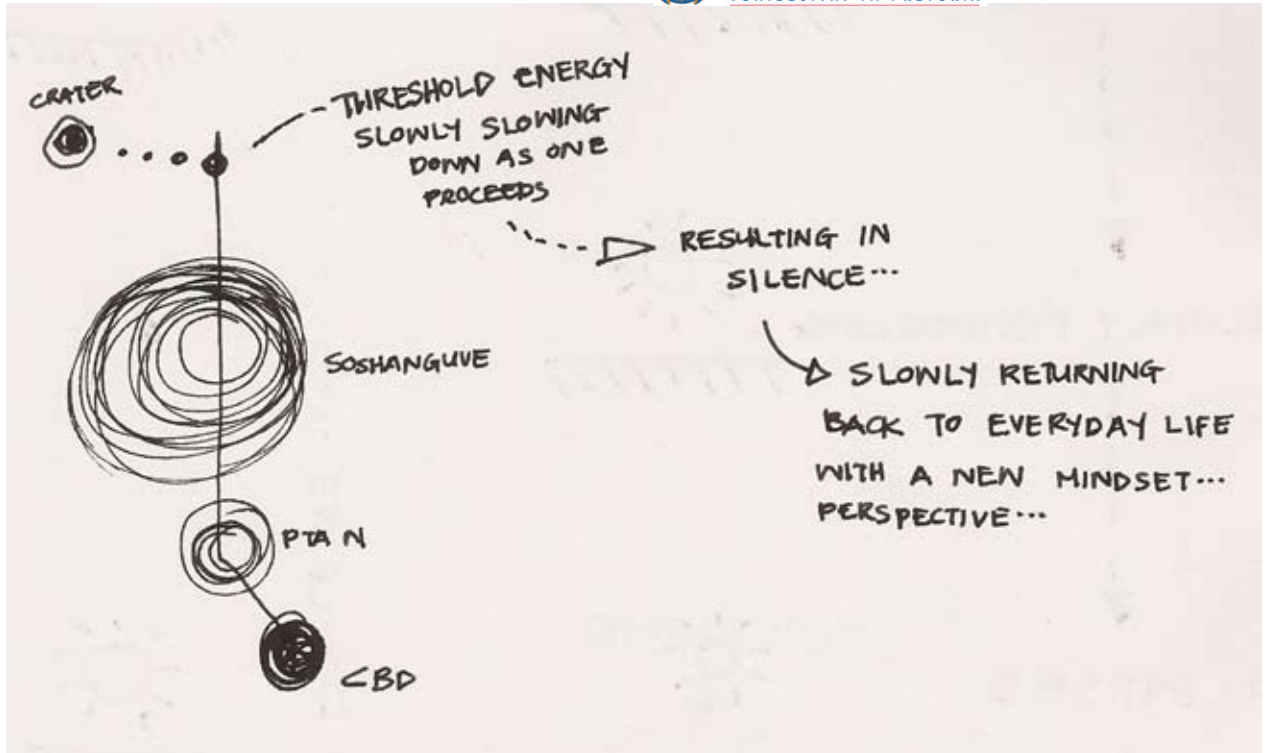 CRATER
THRESHOLD ENERGY
SLOWLY SLOWING
DOWN AS ONE
PROCEEDS
RESULTING IN
SILENCE...
SLOWLY RETURNING
BACK TO EVERYDAY LIFE
WITH A NEW MINDSET...
PERSPECTIVE...
SOSHANGUVE
PTA N
CBD